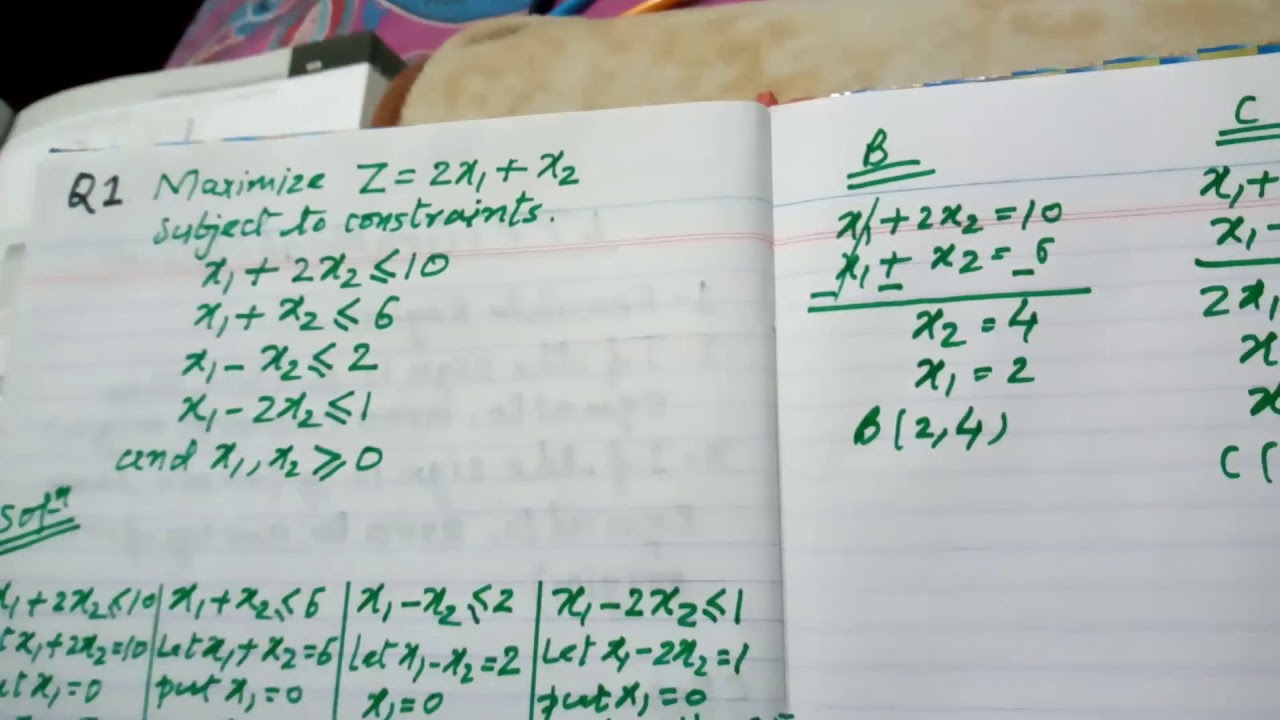 Q1 Maximize Z = 2x₁ + x₂
Subject to constraints.
x₁ + 2x₂ ≤ 10
x₁ + x₂ ≤ 6
x₁ - x₂ ≤ 2
x₁ - 2x₂ ≤ 1
and x₁, x₂ ≥ 0
Solⁿ
x₁ + 2x₂ ≤ 10 | x₁ + x₂ ≤ 6 | x₁ - x₂ ≤ 2 | x₁ - 2x₂ ≤ 1
x₁ + 2x₂ = 10 | Let x₁ + x₂ = 6 | let x₁ - x₂ = 2 | Let x₁ - 2x₂ = 1
x₁ = 0 | put x₁ = 0 | x₁ = 0 | put x₁ = 0
B
x₁ + 2x₂ = 10
x₁ + x₂ = 6
- - -
x₂ = 4
x₁ = 2
B(2,4)
C
x₁ +
x₁ -
2x₁
x
x
C (